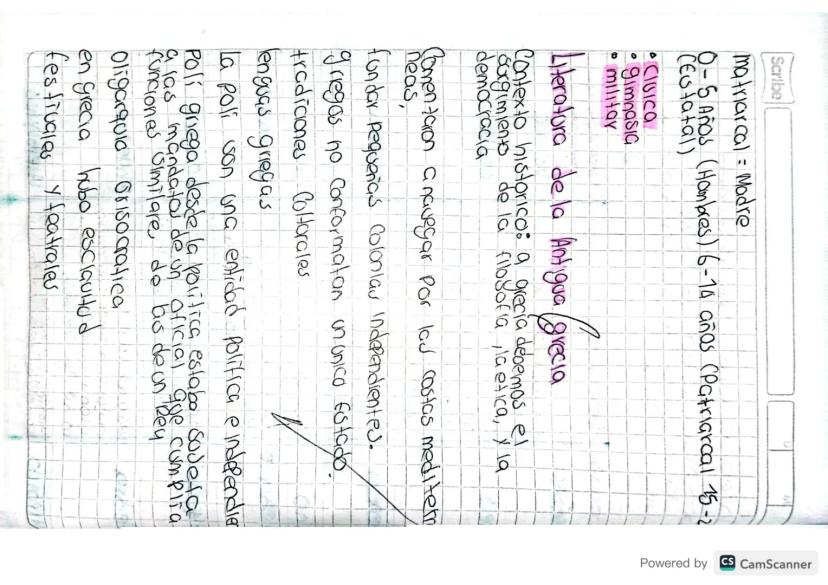 Scribe
Matriarcal = Madre
0 - 5 Años (Hombres) 6 - 14 años (Patriarcal 15-2
(Estatal)
• Civica
• gimnasia
• militar
Literatura de la Antigua grecia
Contexto historico: a grecia debemos el
sorgimiento de la filosofia, la etica, y la
democracia
Comentaron a navegar por las costas mediterr
neas,
fundar pequeñas colonias independientes.
gregas no conformatan un unico Estado.
tradiciones Coltorales
lenguas griegas
La poli son una entidad politica e independie
Poli griega desde la politica estaba sujeta
a las mandatos de un oficial que cumplia
funciones similares de las de un Rey
oligarquia Arisocratica
en grecia hubo esclavitud
festivales y teatrales
Powered by CS CamScanner